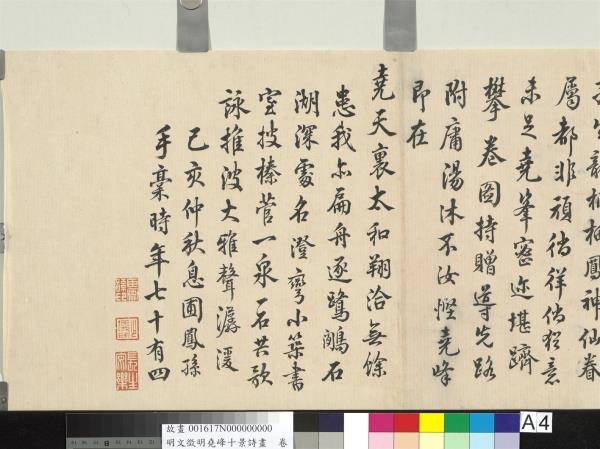 栖鳳神仙眷
屬都非頑徜徉意
未足堯峯密迩堪躋
攀卷圖持贈導先路
附庸湯沐不汝慳堯峰
即在
堯天裏太和翔洽無餘
患我亦扁舟逐鷺石
湖深處名澄灣小築書
室披榛菅一泉一石共歌
詠推波大雅聲潺湲
己亥仲秋息圃鳳孫
手稾時年七十有四
故畫 001617N000000000
明文徵明堯峰十景詩畫 卷
A4